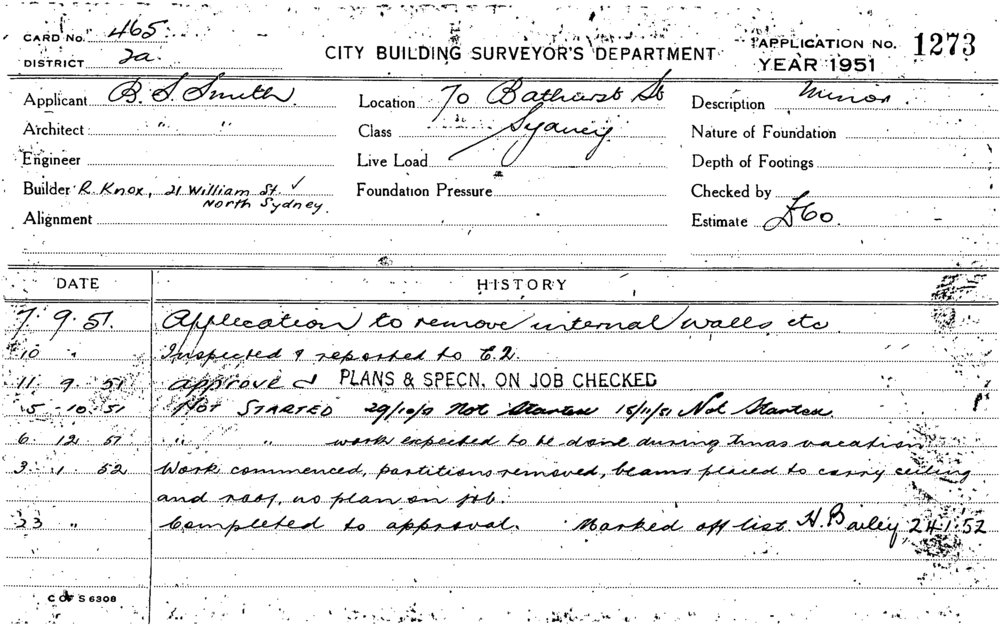 CARD No. 465
DISTRICT 2a.
CITY BUILDING SURVEYOR'S DEPARTMENT
APPLICATION No. 1273
YEAR 1951
Applicant B. S. Smith.
Architect " "
Engineer
Builder R. Knox, 21 William St. ✓
North Sydney.
Alignment
Location 70 Bathurst St
Class Sydney
Live Load
Foundation Pressure
Description Minor.
Nature of Foundation
Depth of Footings
Checked by
Estimate £60.
DATE HISTORY
7. 9. 51. Application to remove internal walls etc
10 " Inspected & reported to C.2.
11 9 51 Approved PLANS & SPECN. ON JOB CHECKED
5 - 10. 51 NOT STARTED 29/10/ Not Started 15/11/51 Not Started
6. 12. 51 " " work expected to be done during Xmas vacation
3. 1. 52 Work commenced, partitions removed, beams placed to carry ceiling
and roof, no plan on job.
23 " Completed to approval. Marked off list H. Bailey 24.1.52
C OF S 6308